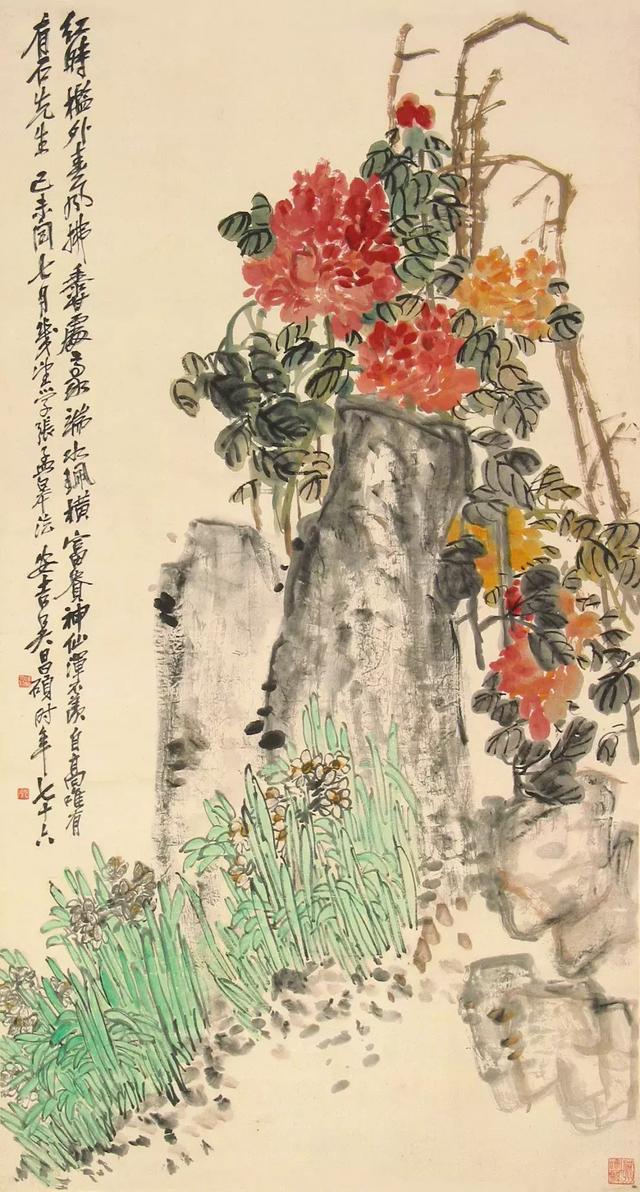 紅時檻外春風拂香處豪端水珮橫富貴神仙渾不羨自高唯有
有石先生己未閏七月幾望學張孟皋法安吉吳昌碩時年七十六